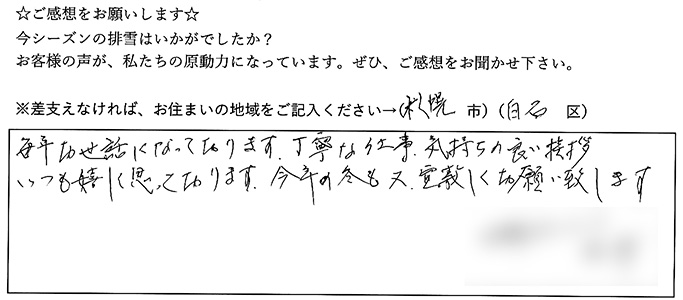 ☆ご感想をお願いします☆
今シーズンの排雪はいかがでしたか？
お客様の声が、私たちの原動力になっています。ぜひ、ご感想をお聞かせ下さい。
※差支えなければ、お住まいの地域をご記入ください→(札幌 市) (白石 区)
毎年お世話になっております。丁寧な仕事、気持ちの良い挨拶
いつも嬉しく思っております。今年の冬も又、宜敷しくお願い致します